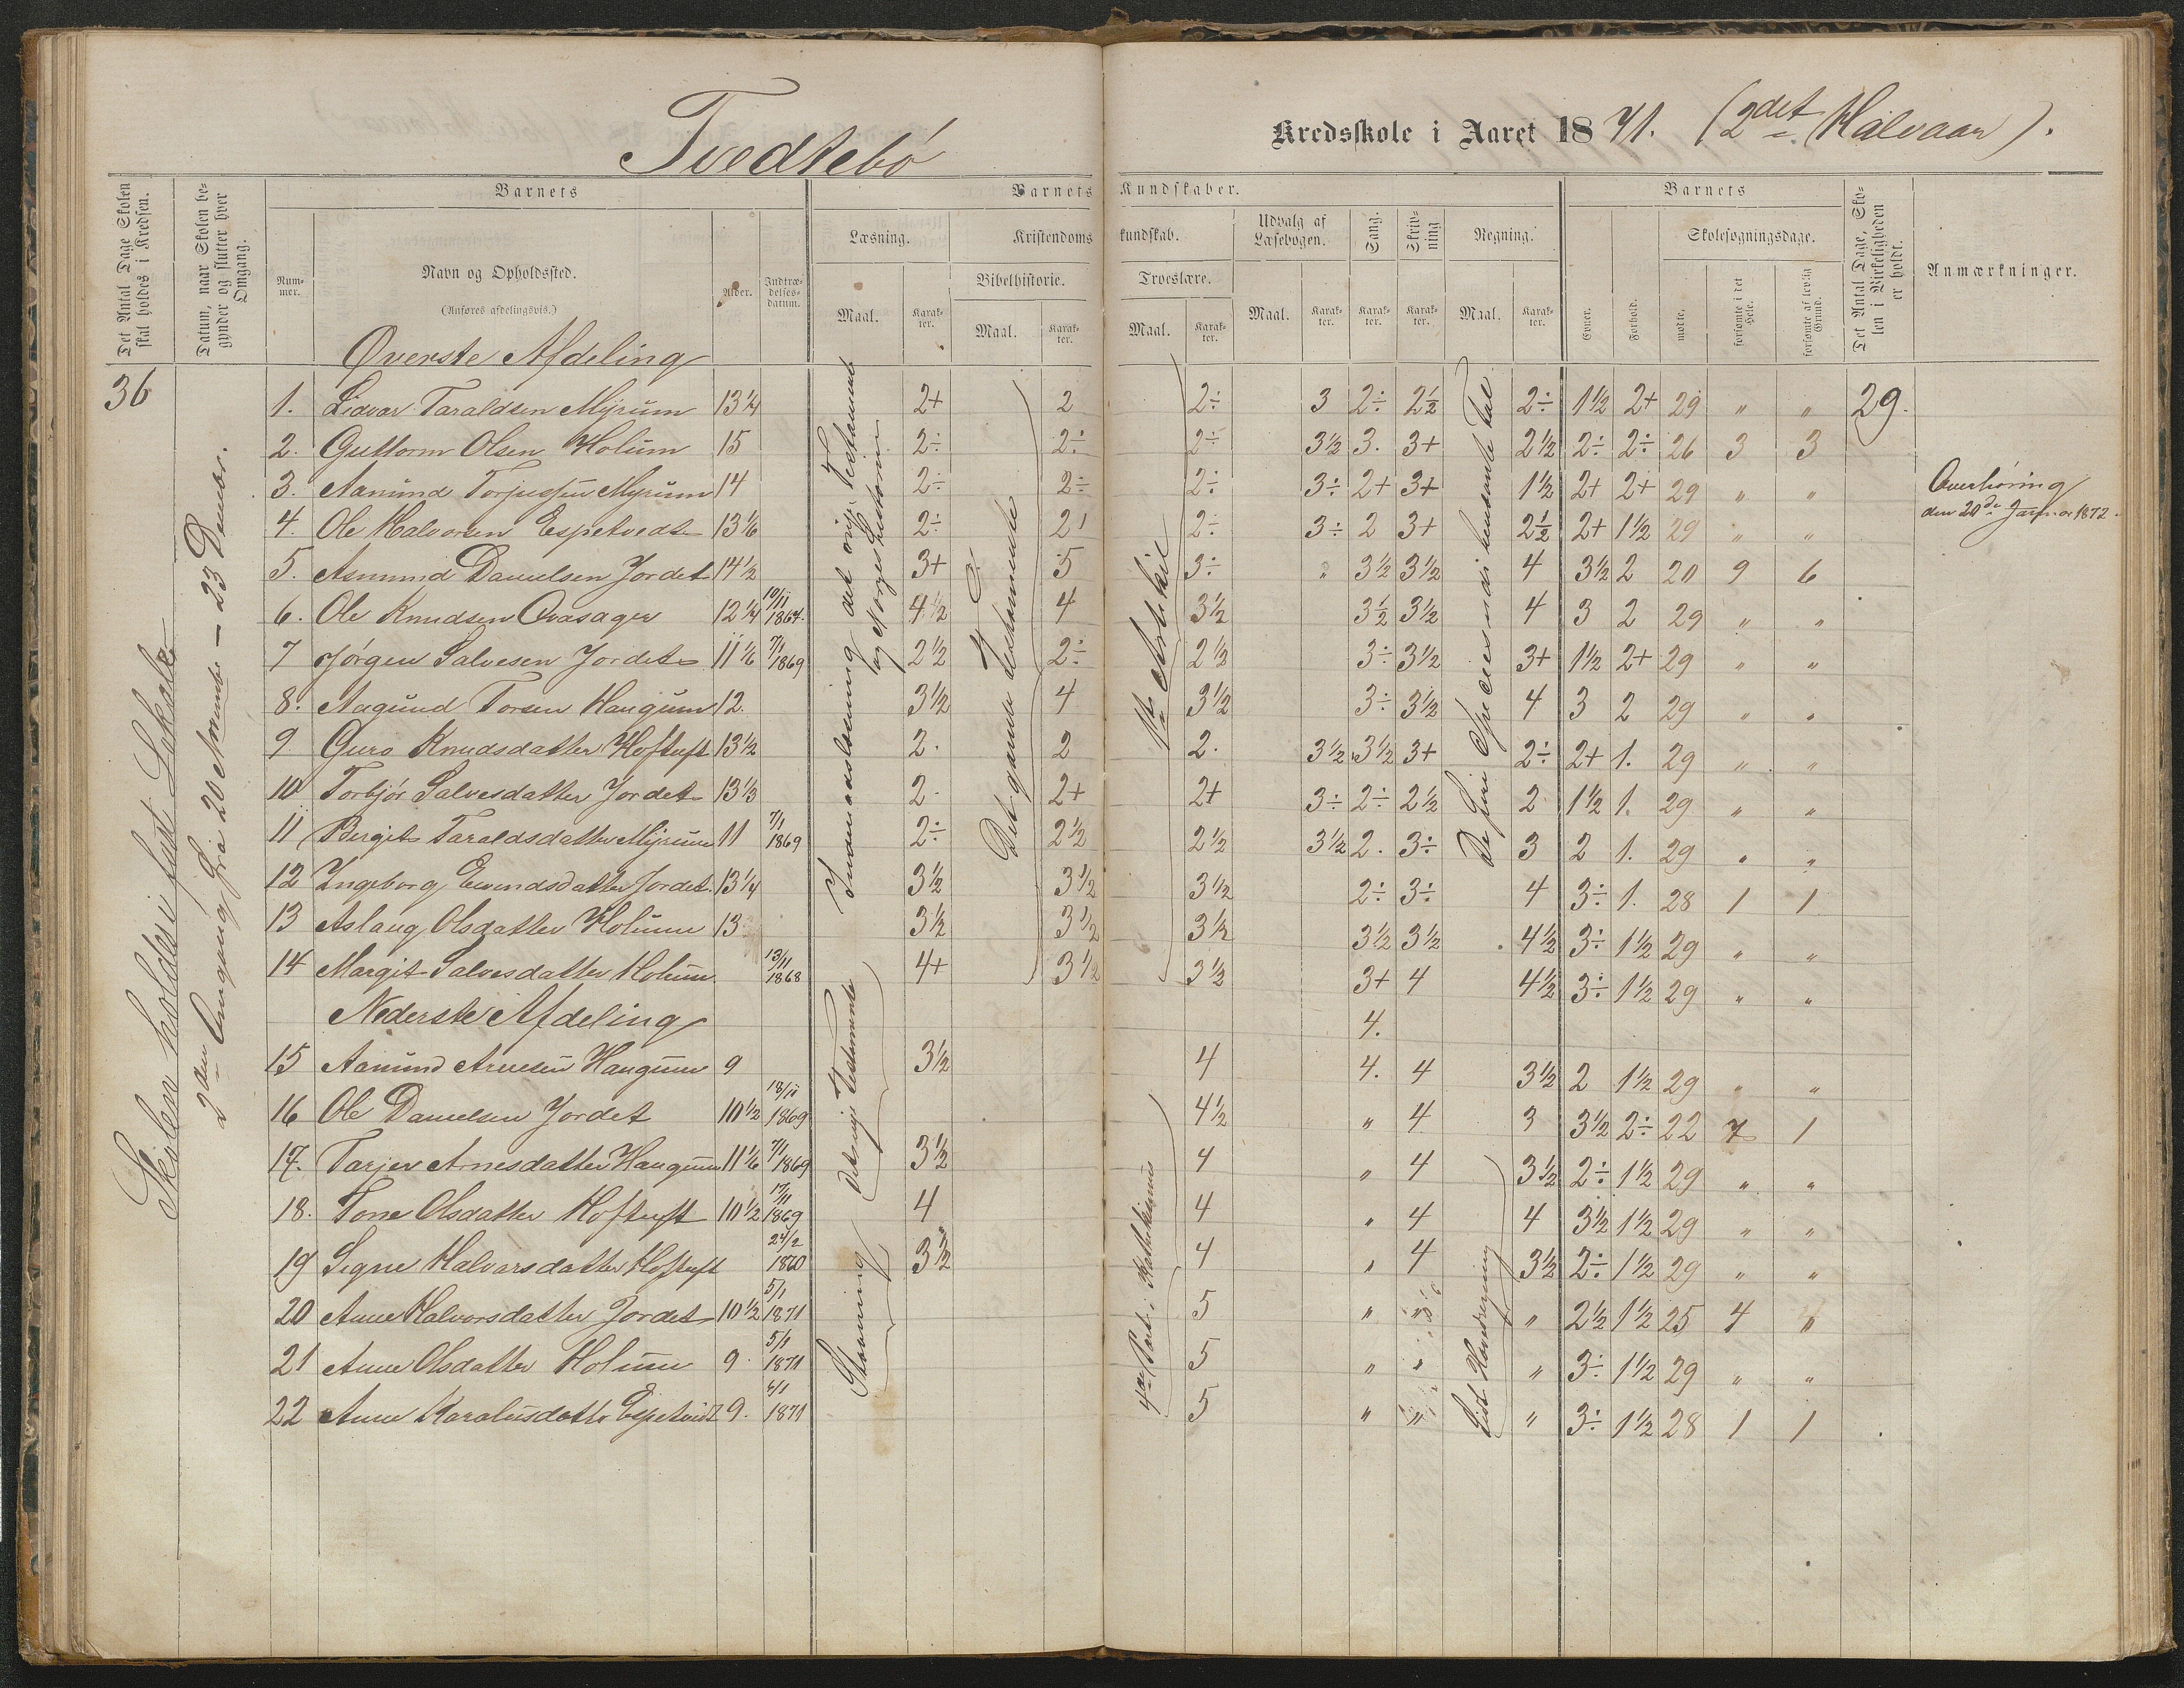 Tvedtebø Kredsskole i Aaret 1871. (2det Halvaar).
Det Antal Dage Skolen skal holdes i Kredsen.
Datum, naar Skolen begynder og slutter hver Omgang.
Barnets
Nummer.
Navn og Opholdssted.
(Anføres afdelingsvis.)
Alder.
Indtrædelsesdatum.
Barnets Kundskaber.
Læsning.
Maal.
Karakter.
Kristendomskundskab.
Bibelhistorie.
Maal.
Karakter.
Troeslære.
Maal.
Karakter.
Udvalg af Læsebogen.
Maal.
Karakter.
Sang.
Karakter.
Skrivning
Karakter.
Regning.
Maal.
Karakter.
Barnets
Evner.
Forhold.
Skolesøgningsdage.
mødte.
forsømte i det Hele.
forsømte af lovlig Grund.
Det Antal Dage, Skolen i Virkeligheden er holdt.
Anmærkninger.
36
Skolen holdes i fast Lokale
2den Omgang fra 20 Novembr – 23 Decembr.
Indenadslæsning det nye Testamente
og Norges historien
det nye Testamente
Stavning
Det gamle Testamente
1ste Artikel
4de Part i Katekismus
De fire Species med i hele Tal
Lidt Hovedregning
Øverste Afdeling
1. Lidvar Taraldsen Myrum 13¼ 2+ 2 2÷ 3 2÷ 2½ 2÷ 1½ 2+ 29 " " 29.
2. Guttorm Olsen Holum 15 2÷ 2÷ 2÷ 3½ 3. 3+ 2½ 2÷ 2÷ 26 3 3
3. Aanund Torjussen Myrum 14 2÷ 2÷ 2÷ 3÷ 2+ 3+ 1½ 2+ 2+ 29 " "
Overhøring
den 20de Januar 1872.
4. Ole Halvorsen Espetvedt 13⅙ 2÷ 2 2÷ 3÷ 2 3+ 2½ 2+ 1½ 29 " "
5. Asmund Danielsen Jordet 14½ 3+ 5 3÷ " 3½ 3½ 4 3½ 2 20 9 6
6. Ole Knudsen Ovasager 12¼ 10/11 1864. 4½ 4 3½ 3½ 3½ 4 3 2 29 " "
7 Jørgen Salvesen Jordet 11⅙ 7/1 1869 2½ 2÷ 2½ 3÷ 3½ 3+ 1½ 2+ 29 " "
8. Aagund Torsen Haugum 12. 3½ 4 3½ 3÷ 3½ 4 3 2 29 " "
9 Guro Knudsdatter Hoftuft 13½ 2. 2 2. 3½ 3½ 3+ 2÷ 2+ 1. 29 " "
10 Torbjør Salvesdatter Jordet 13⅓ 2. 2+ 2+ 3÷ 2÷ 2½ 2 1½ 1. 29 " "
11 Bergit Taraldsdatter Myrum 11 7/1 1869 2÷ 2½ 2½ 3½ 2. 3÷ 3 2 1. 29 " "
12 Ingeborg Eivendsdatter Jordet. 13¼ 3½ 3½ 3½ 2÷ 3÷ 4 3÷ 1. 28 1 1
13 Aslaug Olsdatter Holum 13 3½ 3½ 3½ 3½ 3½ 4½ 3÷ 1½ 29 " "
14 Margit Salvesdatter Holum. 13/11 1868 4+ 3½ 3½ 3+ 4 4½ 3÷ 1½ 29 " "
Nederste Afdeling 4.
15 Aanund Arnesen Haugum 9 3½ 4 4. 4 3½ 2 1½ 29 " "
16 Ole Danielsen Jordet 10½ 18/11 1869 4½ " 4 3 3½ 2÷ 22 7 1
17. Tarjer Arnesdatter Haugum 11⅙ 7/1 1869 3½ 4 " 4 3½ 2÷ 1½ 29 " "
18. Tone Olsdatter Hoftuft 10½ 17/11 1869 4 4 " 4 4 3½ 1½ 29 " "
19 Signe Halvorsdatter Hoftuft 24/2 1860 3½ 4 " 4 3½ 2÷ 1½ 29 " "
20 Anne Halvorsdatter Jordet 10½ 5/1 1871 5 " " " 2½ 1½ 25 4
21 Anne Olsdatter Holum 9. 5/1 1871 5 " " " 3÷ 1½ 29 " "
22 Anne Karalusdattr Espetvedt 9. 6/1 1871 5 " " " 3÷ 1½ 28 1 1